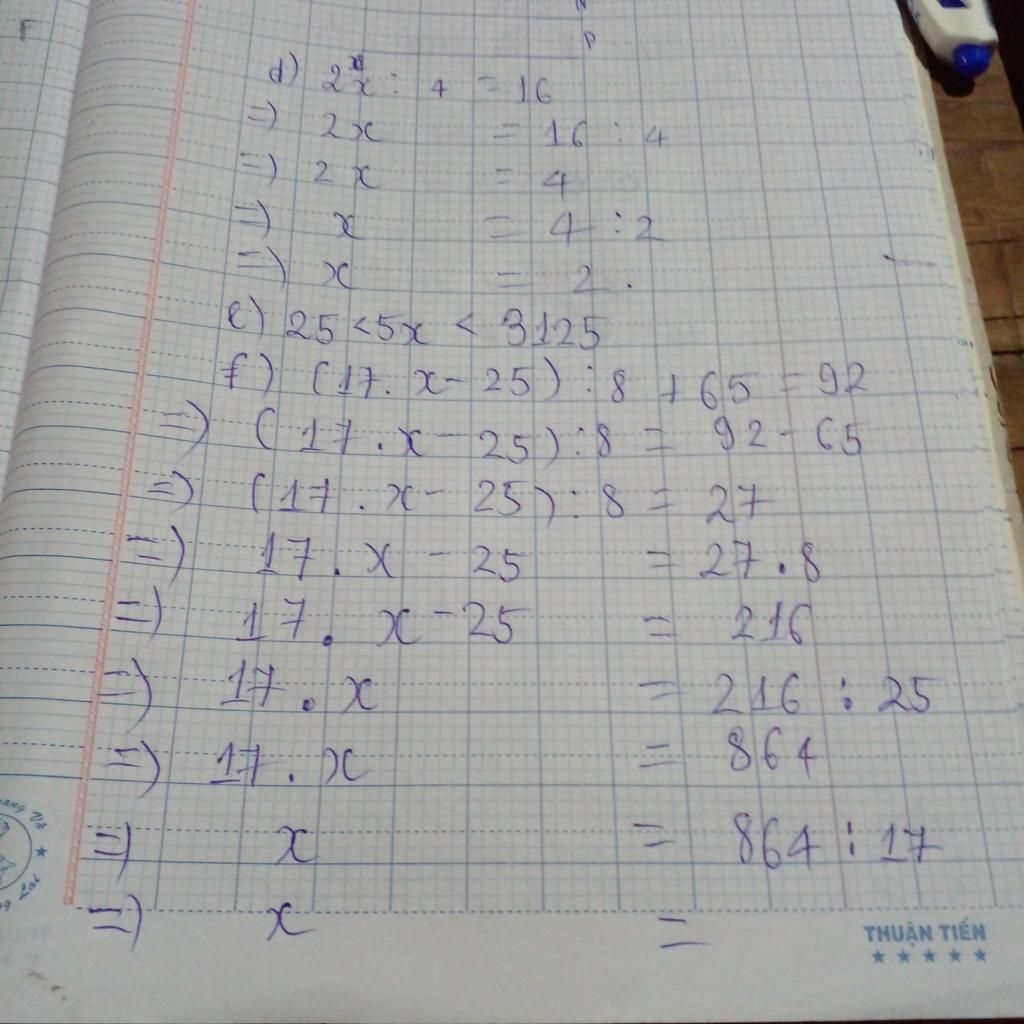 P
d) 2x : 4 = 16
=) 2x = 16 : 4
=) 2x = 4
=) x = 4 : 2
=) x = 2.
e) 25 < 5x < 3125
f) (17. x - 25) : 8 + 65 = 92
=) (17. x - 25) : 8 = 92 - 65
=) (17. x - 25) : 8 = 27
=) 17. x - 25 = 27.8
=) 17. x - 25 = 216
=) 17. x = 216 : 25
=) 17. x = 864
=) x = 864 : 17
=) x =
THUẬN TIẾN